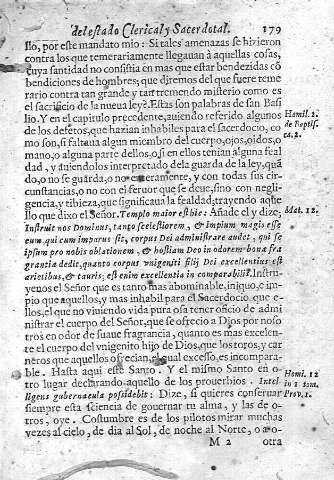 del estado Clerical y Sacerdotal. 179
llo, por este mandato mio : Si tales amenazas se hizieron
contra los que temerariamente llegauan à aquellas cosas,
cuya santidad no consistia en mas que estar bendezidas cõ
bendiciones de hombres; que diremos del que fuere teme
rario contra tan grande y tan tremendo misterio como es
el sacrificio de la nueua ley? Estas son palabras de san Basi
lio. Y en el capitulo precedente, auiendo referido algunos
de los defetos, que hazian inhabiles para el sacerdocio, co
mo son, si faltaua algun miembro del cuerpo, ojos, oidos, o
mano, o alguna parte dellos, o, si en ellos tenian alguna feal
dad, y auiendolos interpretado de la guarda de la ley, quã
do, o no se guarda, o no enteramente, y con todas sus cir
cunstancias, o no con el feruor que se deue, sino con negli-
gencia, y tibieza, que significaua la fealdad; trayendo aque
llo que dixo el Señor. Templo maior est hic: Añade el y dize;
Instruit nos Dominus, tanto scelestiorem, & impium magis esse
eum, qui cum impurus sit, corpus Dei administrare audet, qui se
ipsum pro nobis oblationem, & hostiam Dei in odorem bonæ fra
grantiæ dedit, quanto corpus vnigeniti filij Dei excellentius est
arietibus, & tauris; est enim excellentia in comparabili. Instru-
yenos el Señor que es tanto mas abominable, iniquo, e im-
pio que aquellos, y mas inhabil para el Sacerdocio que e-
llos, el que no viuiendo vida pura osa tener oficio de ad-
ministrar el cuerpo del Señor, que se ofrecio a Dios por noso
tros en odor de suaue fragrancia, quanto es mas excelen-
te el cuerpo del vnigenito hijo de Dios, que los toros, y car
neros que aquellos ofrecian, el qual excesso, es incompara-
ble. Hasta aqui este Santo. Y el mismo Santo en o-
tro lugar declarando aquello de los prouerbios. Intel
ligens gubernacula possidebit: Dize, si quieres conseruar
siempre esta sciencia de gouernar tu alma, y las de o-
tros, oye. Costumbre es de los pilotos mirar muchas
vezes al cielo, de dia al Sol, de noche al Norte, o a o-
M 2 otra
Homil. 1.
de Baptis.
ca. 2.
Mat. 12.
Homi. 12
in 1. tom.
Prov. 1.